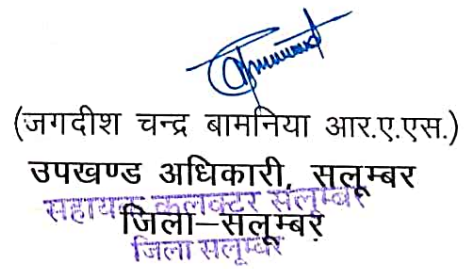 (जगदीश चन्द्र बामनिया आर.ए.एस.)
उपखण्ड अधिकारी, सलूम्बर
सहायक कलक्टर सलूम्बर
जिला–सलूम्बर
जिला सलूम्बर